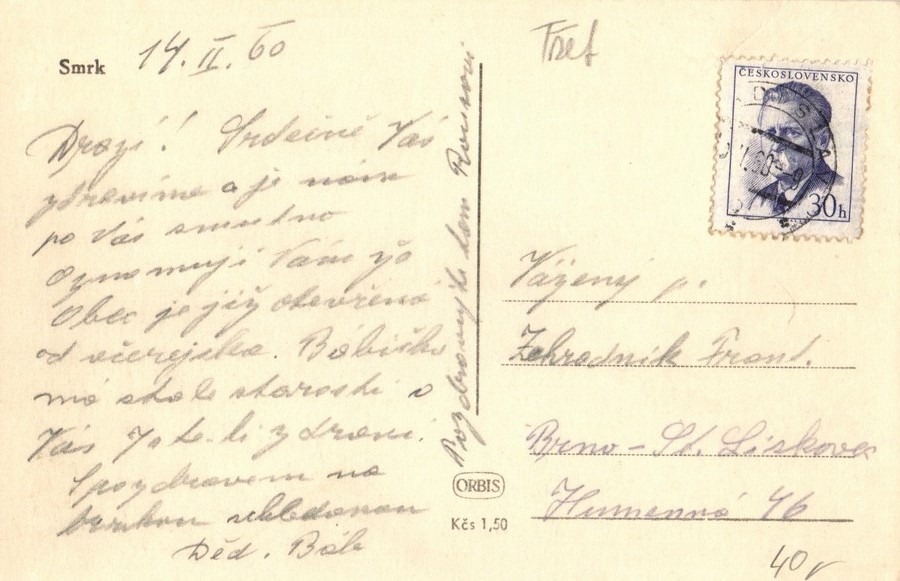 Smrk 14. II. 60
Drazí! Srdečně Vás
zdravíme a je nám
po Vás smutno
Oznamuji Vám že
Obec je již otevřená
od včerejska. Babička
má stále starosti o
Vás Jste-li zdraví.
S pozdravem na
brzkou shledanou
Děd. Báb
Pozdravujte tam
ORBIS
Kčs 1,50
ČESKOSLOVENSKO
30h
Vážený p.
Zehradník Frant.
Brno - St. Lískovec
Humenná 46
40